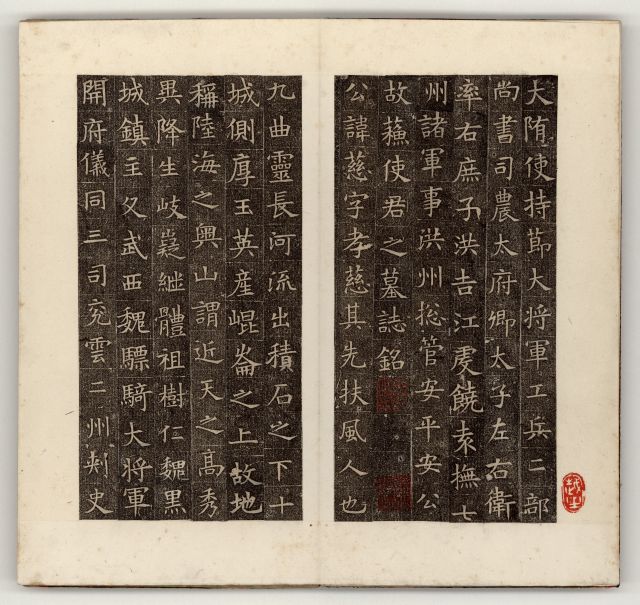 大隋使持節大將軍工兵二部
尚書司農太府卿太子左右衛
率右庶子洪吉江虔饒袁撫七
州諸軍事洪州捴管安平安公
故蘓使君之墓誌銘
公諱慈字孝慈其先扶風人也
九曲靈長河流出積石之下十
城側厚玉英産崐崙之上故地
稱陸海之奧山謂近天之高秀
異降生岐嶷継體祖樹仁魏黒
城鎮主父武西魏驃騎大將軍
開府儀同三司兖雲二州刾史